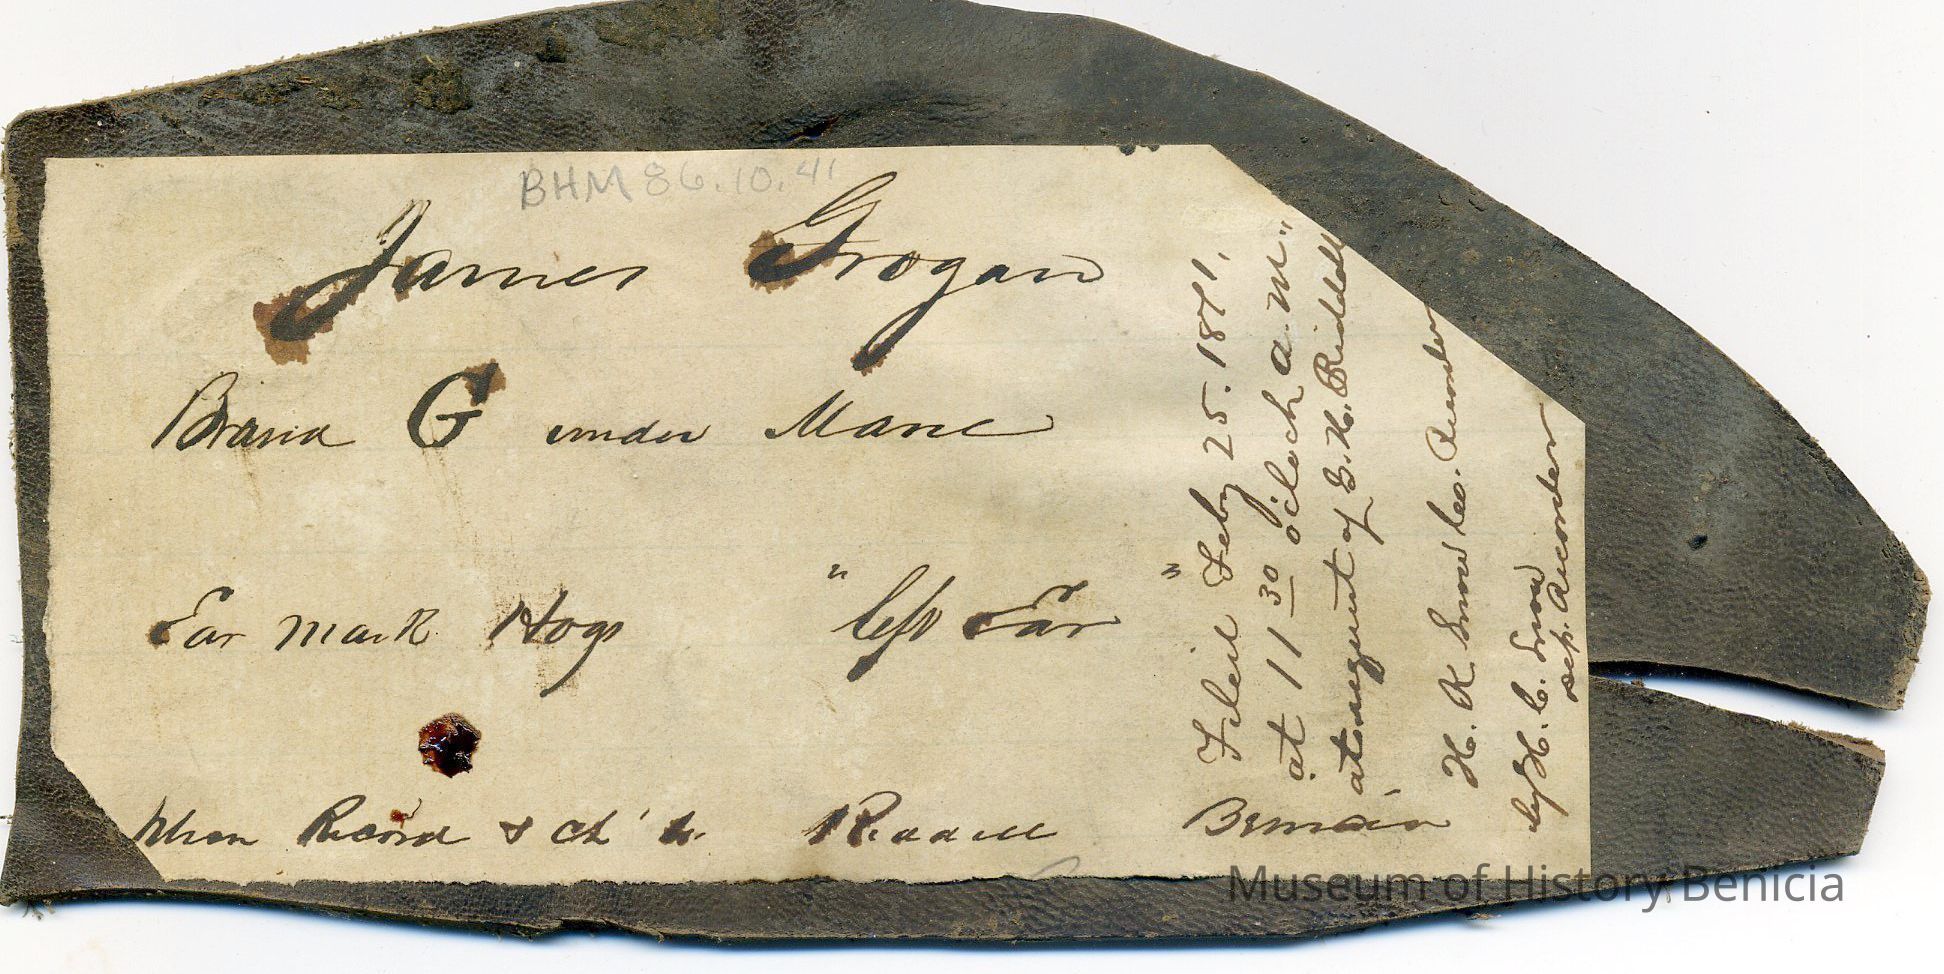 BHM 86.10.41
James Grogan
Brand G under Mane
Ear mark Hogs " left Ear "
When Record & ch'd to Riddell Benicia
Filed Feby 25. 1871.
at 11 30 o'clock a.m."
at request of G. H. Riddell
H. K. Snow Co. Recorder
by H. C. Snow
Dep. Recorder
Museum of History Benicia